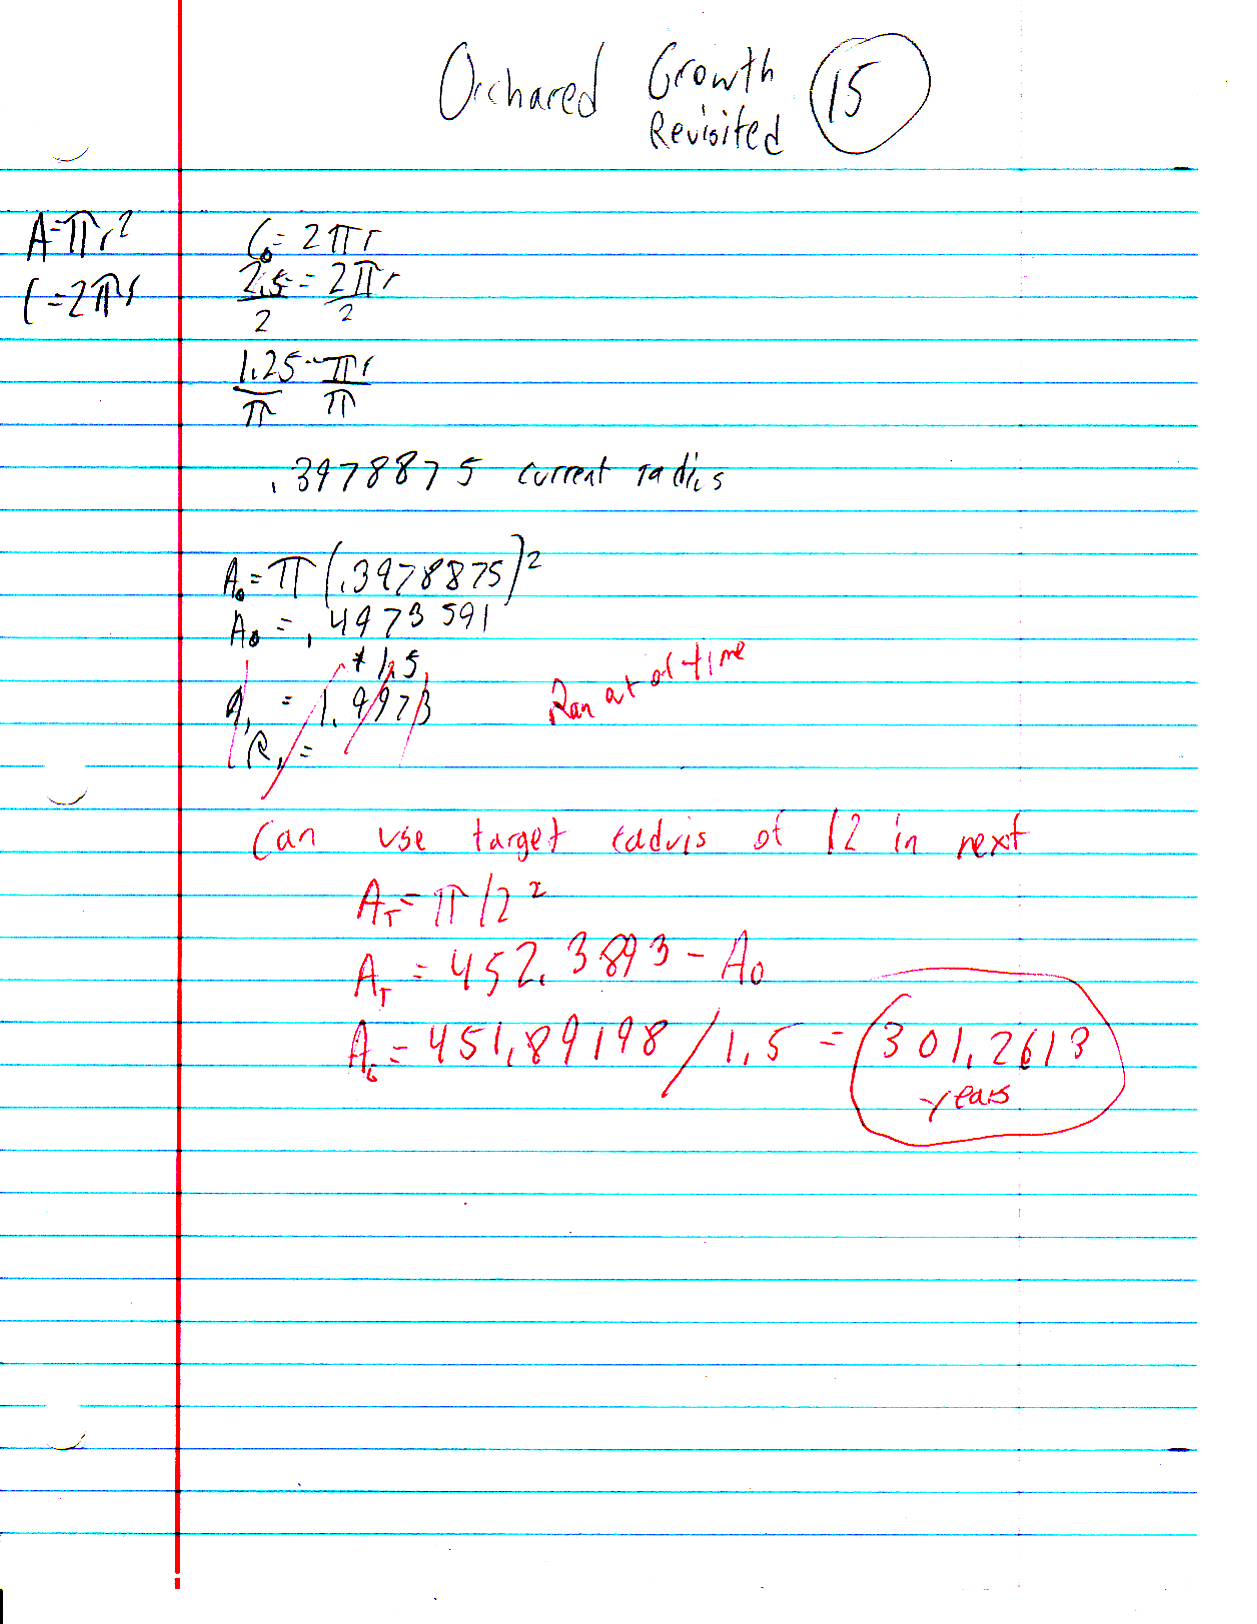 Orchared Growth
Revisited 15
A=πr²
C=2πr
C₀= 2πr
2.5 = 2πr
2 2
1.25 = πr
π π
.3978875 current radius
A₀=π(.3978875)²
A₀ = .4973591
+ 1.5
A₁ = 1.9973
R₁ =
Ran out of time
Can use target radius of 12 in next
A_T = π12²
A_T = 452.3893 - A₀
= 451.89198 / 1.5 = 301.2613
years